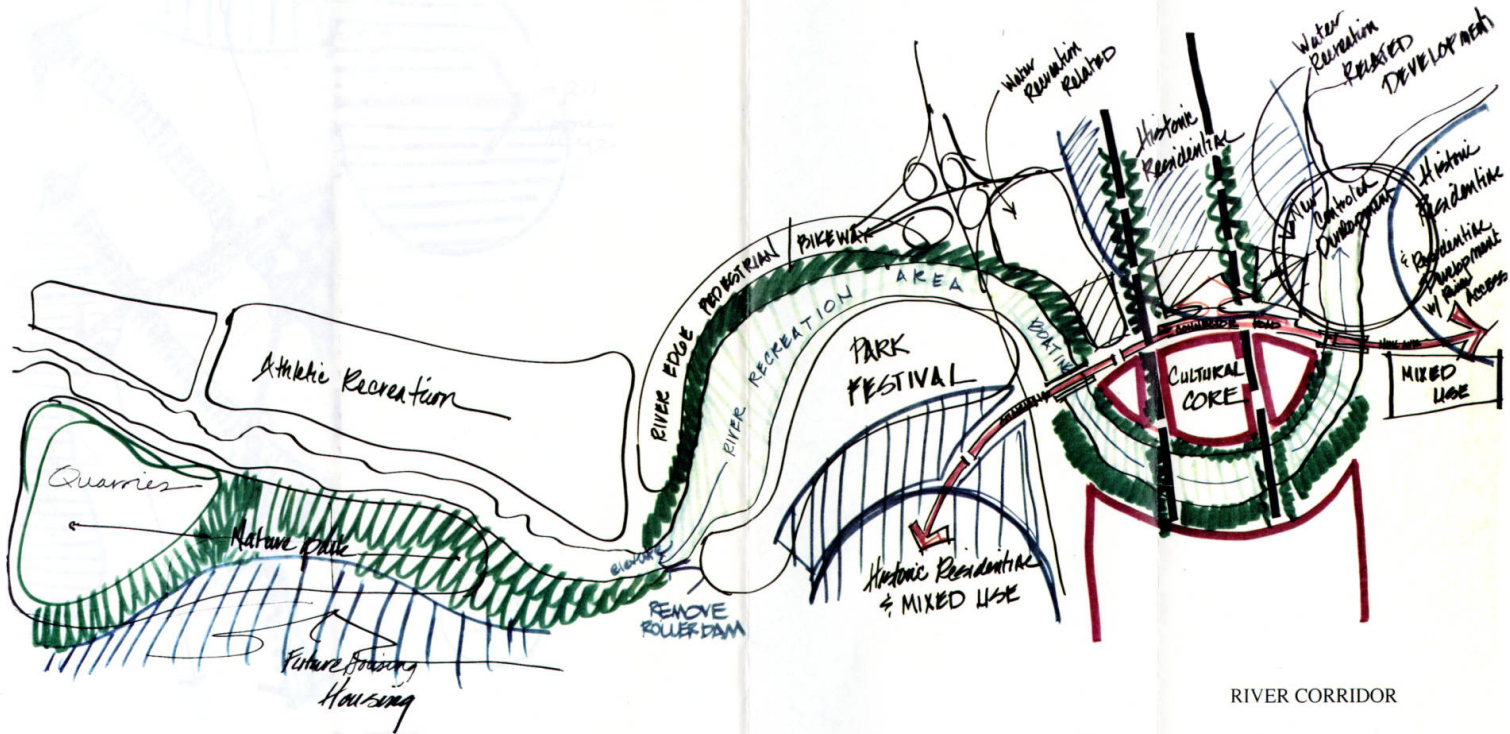 Water
Recreation
RELATED
Water
Recreation
RELATED
DEVELOPMENT
Historic
Residential
Historic
Residential
& Residential
Development
w/ River
ACCESS
Controlled
Development
RIVER EDGE PEDESTRIAN / BIKEWAY
RIVER RECREATION AREA
BOATING
CONNECTOR ROAD
PARK
FESTIVAL
CULTURAL
CORE
MIXED
USE
Athletic Recreation
Quarries
Nature park
REMOVE
ROLLERDAM
Historic Residential
& MIXED USE
Future Housing
Housing
RIVER CORRIDOR